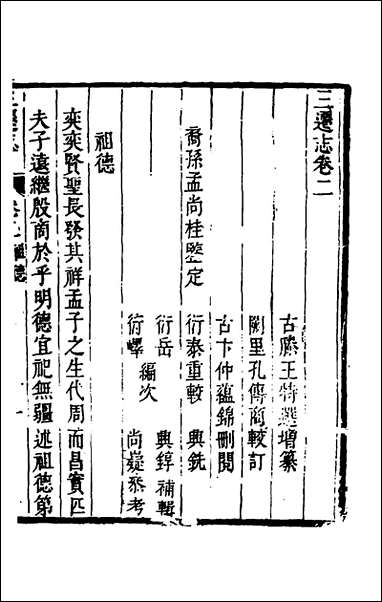 三遷志卷二
古滕王特選增纂
闕里孔傳商較訂
古卞仲蘊錦刪閱
裔孫孟尚桂鑒定
衍泰重較 興銑
衍岳 興錞補輯
編次
衍嶧 尚嶷叅考
祖德
奕奕賢聖長發其祥孟子之生代周而昌實匹
夫子遠繼殷商於乎明德宜祀無疆述祖德第